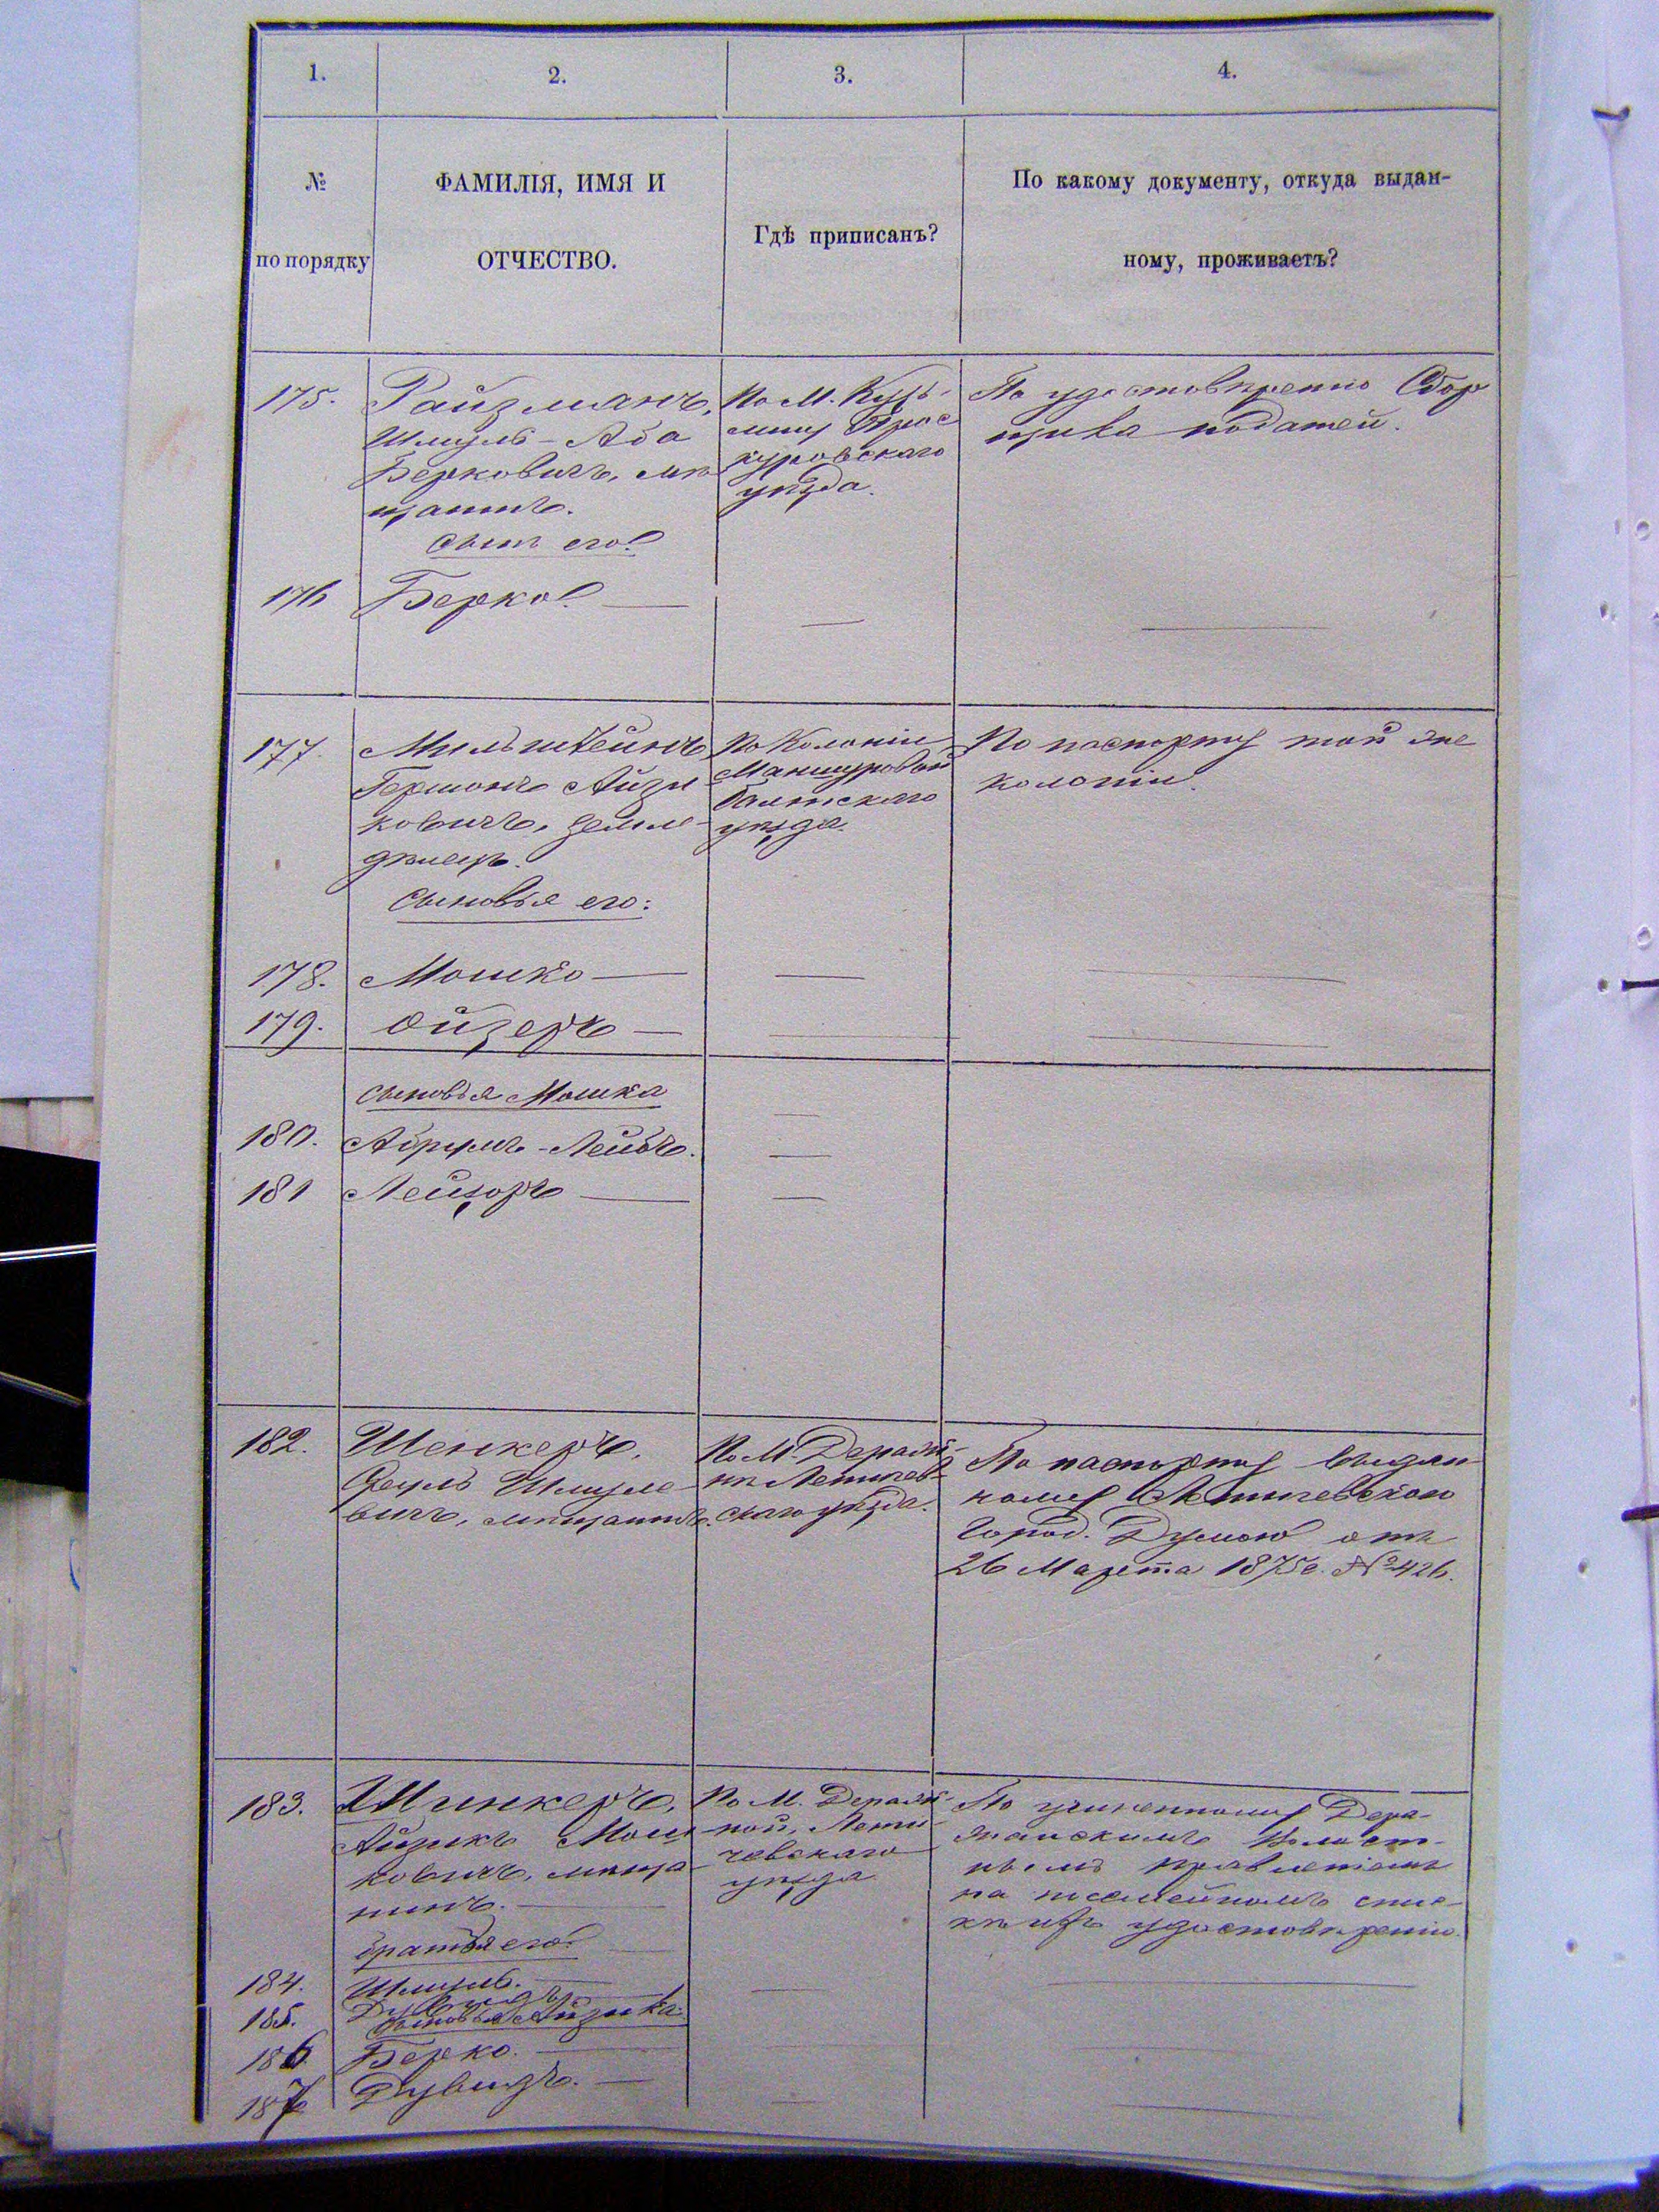 1. 2. 3. 4.
№ по порядку
ФАМИЛІЯ, ИМЯ И
ОТЧЕСТВО.
Гдѣ приписанъ?
По какому документу, откуда выдан-
ному, проживаетъ?
175.
Райзманъ,
Шмуль-Аба
Берковичъ, мѣ
щанинъ.
сынъ его:
По М. Кузь-
мину Прос
куровскаго
уѣзда.
По удостовѣренію Сбор
щика податей.
176 Берко.
177.
Мильштейнъ
Гершонъ Айзи
ковичъ, земле-
дѣлецъ.
сыновья его:
По Колоніи
Балтскаго
уѣзда.
По паспорту той же
колоніи.
178. Мошко
179. Ойзеръ
сыновья Мошка
180. Абрумъ-Лейбъ.
181 Лейзоръ
182.
Шенкеръ,
Шмуле
вичъ, мѣщанинъ.
По М. Деражн-
нѣ Летичев-
скаго уѣзда.
По паспорту выдан
ному Летичевскою
Город. Думою отъ
26 Марта 1875г. № 426.
183.
Шинкеръ,
Айзикъ Мош
ковичъ, мѣща
нинъ.
братья его:
По М. Дераж-
ной, Лети-
чевскаго
уѣзда
По учиненному Дера-
жнскимъ Волост-
нымъ правленіемъ
на посемейномъ спис-
кѣ удостовѣренію.
184. Шмуль.
185. Дувидъ
сыновья Айзика:
186 Берко.
187 Дувидъ.